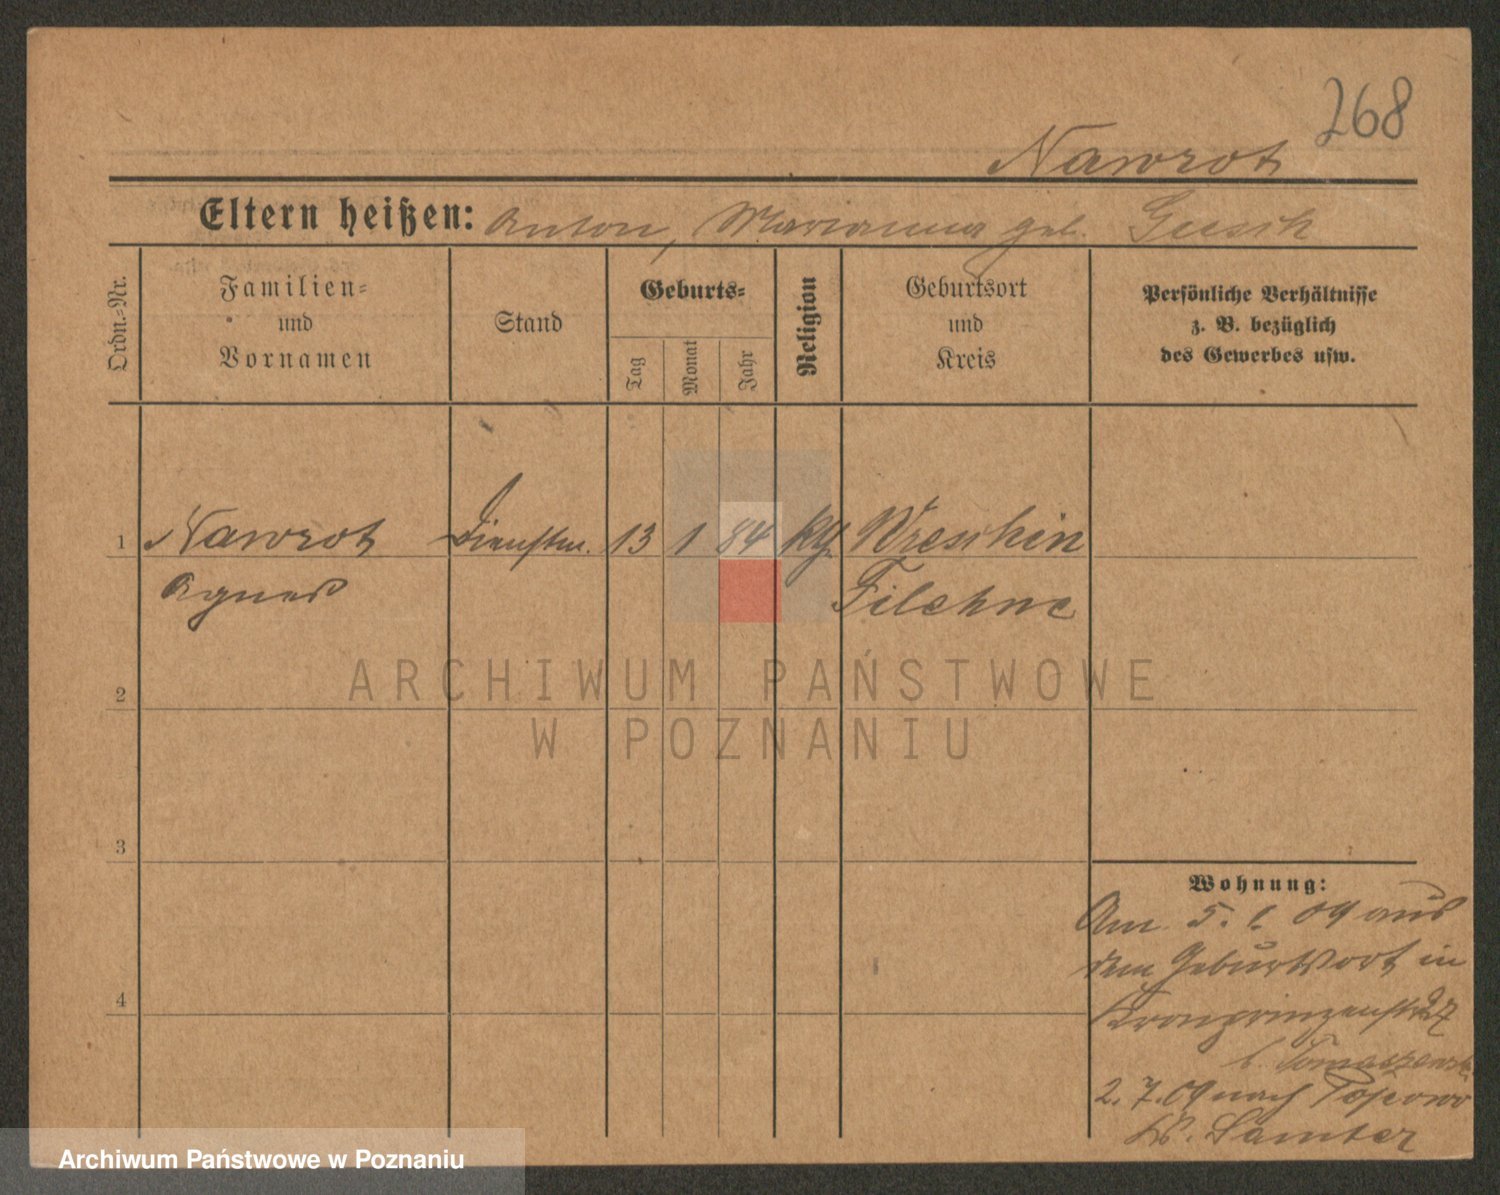 268
Nawrot
Eltern heißen: Anton, Marianna geb.
Ordn.-Nr.
Familien-
und
Vornamen
Stand
Geburts-
Tag
Monat
Jahr
Religion
Geburtsort
und
Kreis
Persönliche Verhältnisse
z. B. bezüglich
des Gewerbes usw.
1 Nawrot Dienstm. 13 1 84 kth. Wreschin
Agnes Filehne
ARCHIWUM PAŃSTWOWE
2
W POZNANIU
3
Wohnung:
Am 5. 1. 09 aus
dem Geburtsort in
4
Kronprinzenstr 27
b.
2. 7. 09 nach
Kr. Samter
Archiwum Państwowe w Poznaniu